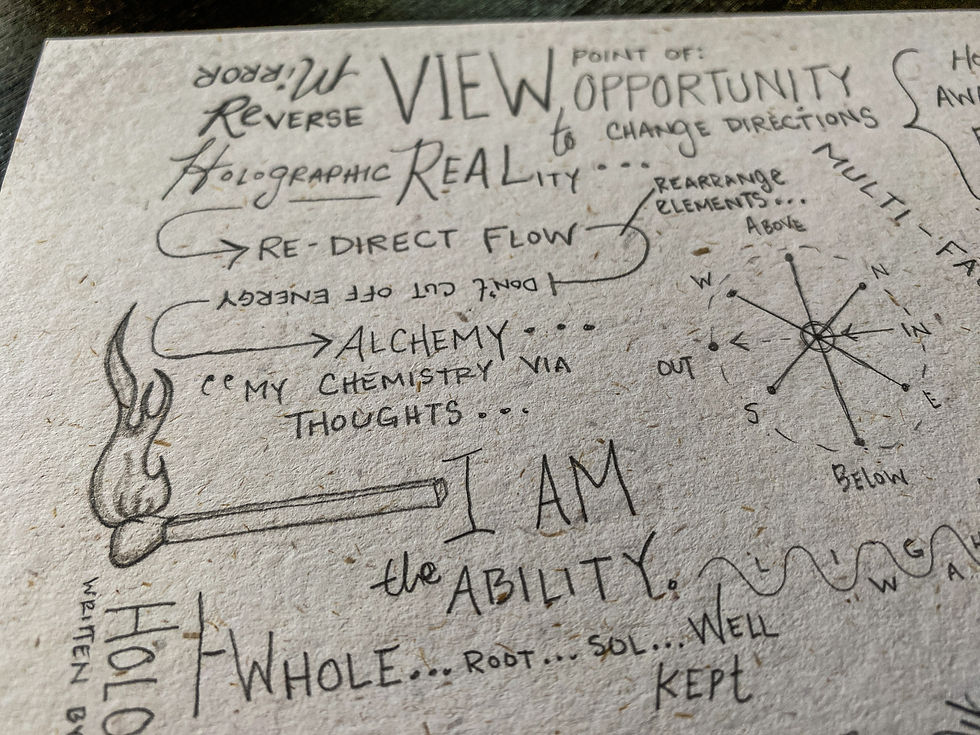 MirroR
REVERSE
VIEW
POINT OF:
OPPORTUNITY
to CHANGE DIRECTIONS
HOLOGRAPHIC REALITY ...
REARRANGE
ELEMENTS...
RE-DIRECT FLOW
DON'T CUT OFF ENERGY
ALCHEMY ....
MY CHEMISTRY VIA
THOUGHTS...
ABOVE
N
W
IN
OUT
E
S
BELOW
MULTI-FA
I AM
the ABILITY.
L I G H
W A
WHOLE... ROOT... SOL... WELL
KEPT
HOLO
WRITTEN BY